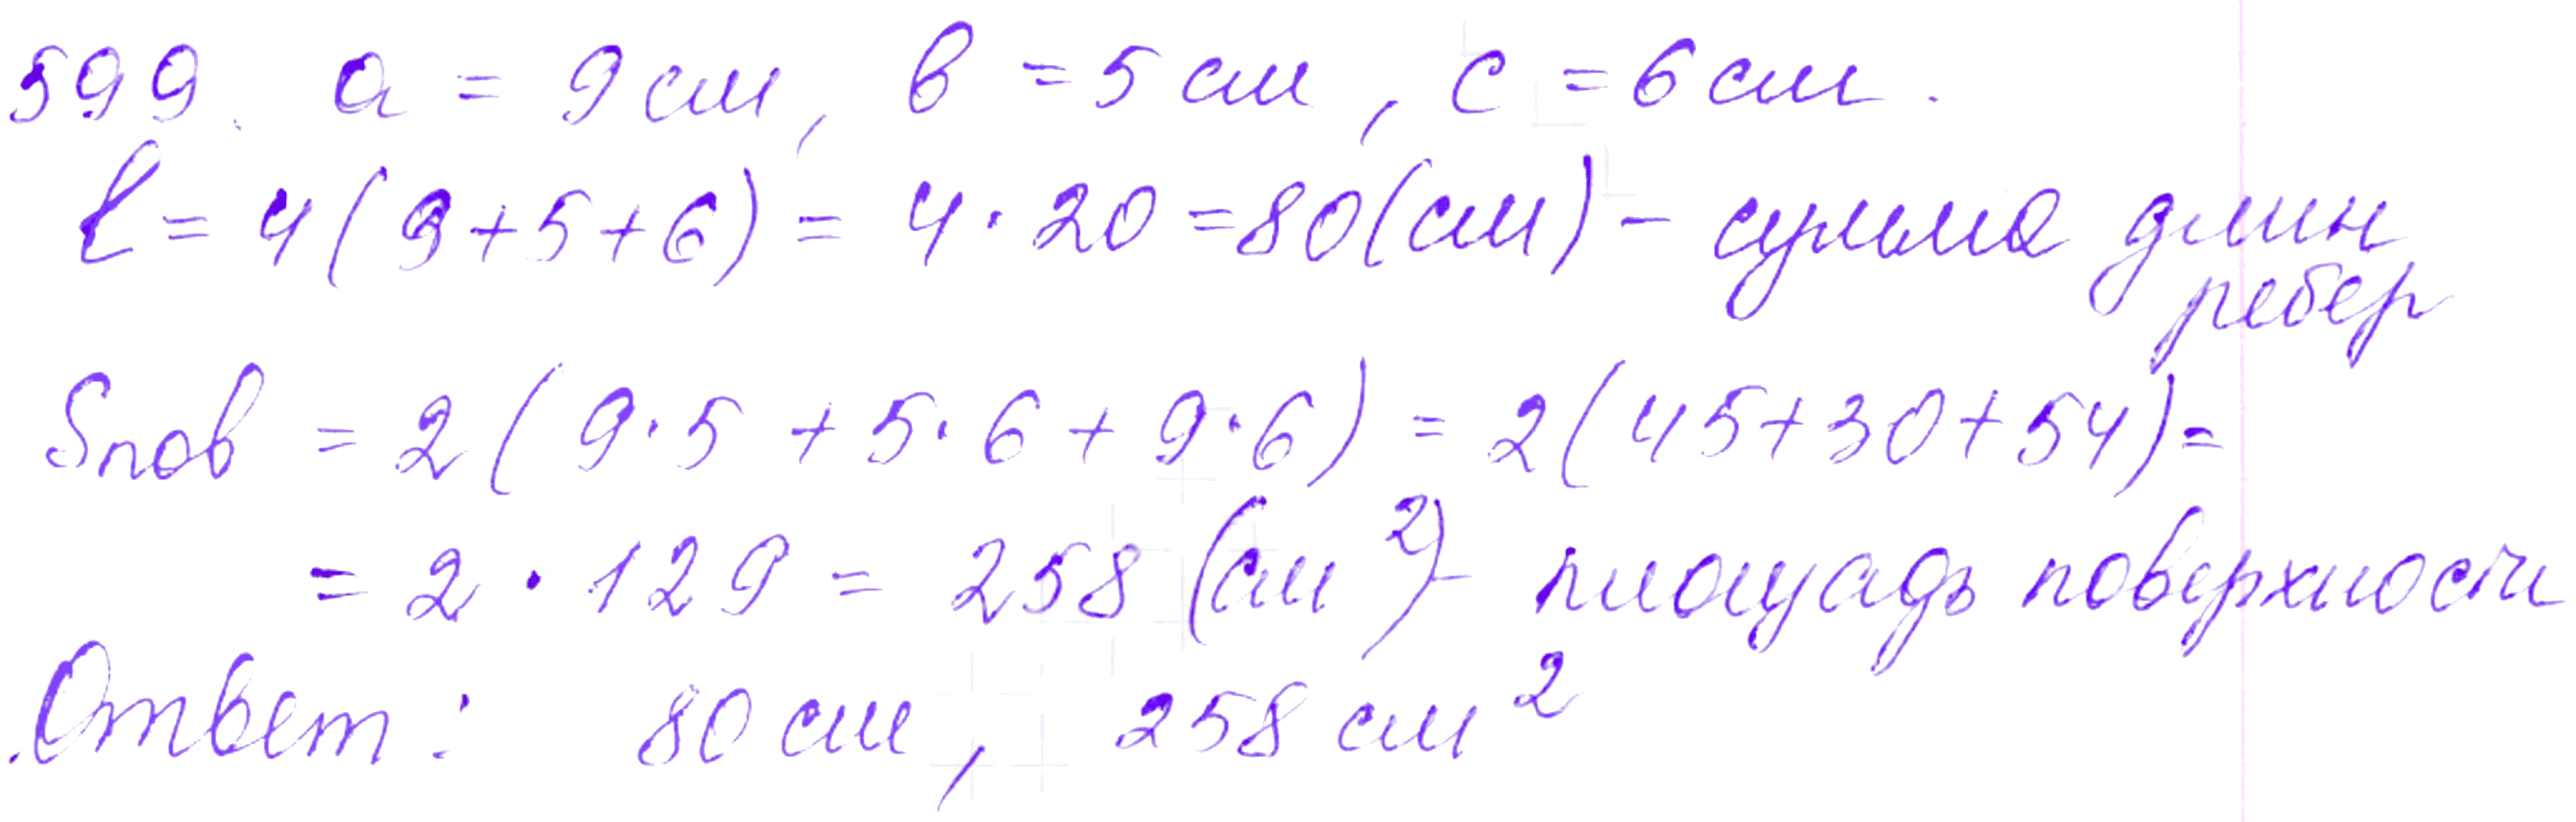 599. a = 9 см, в = 5 см, с = 6 см.
ℓ = 4(9+5+6) = 4·20 = 80(см) – сумма длин
ребер
Sпов = 2(9·5 + 5·6 + 9·6) = 2(45+30+54) =
= 2·129 = 258 (см²) – площадь поверхности
Ответ: 80 см, 258 см²